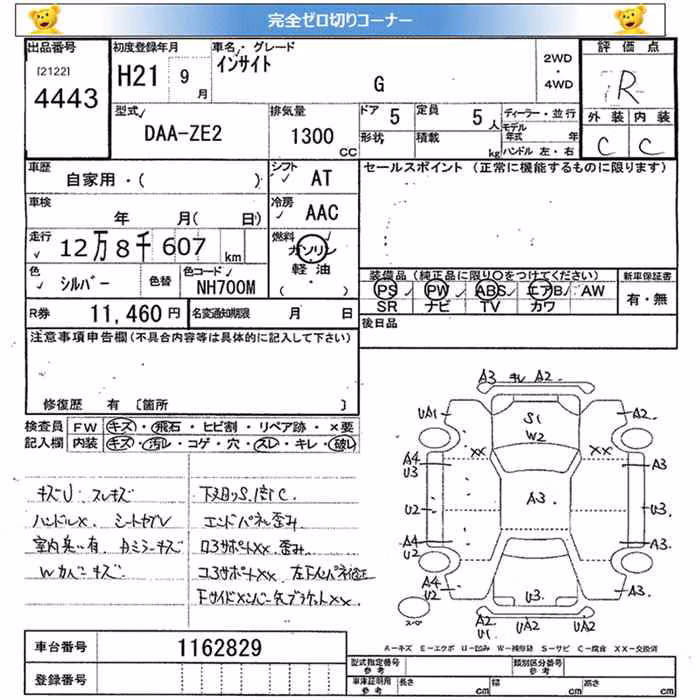 完全ゼロ切りコーナー
出品番号 初度登録年月 車名・グレード 評価点
[2122] H21 9月 インサイト 2WD・4WD R
4443 G
型式 排気量 ドア 5 定員 5人 ディーラー・並行 外装 内装
DAA-ZE2 1300CC 形状 積載 kg モデル年式 年 C C
ハンドル 左・右
車歴 自家用・( ) シフト AT セールスポイント (正常に機能するものに限ります)
車検 年 月( 日) 冷房 AAC
走行 12万8千607km 燃料 ガソリン・軽油 ( ・ )
色 シルバー 色替 色コード NH700M 装備品 (純正品に限り○をつけてください) 新車保証書
PS PW ABS エアB AW 有・無
SR ナビ TV カワ
R券 11,460円 名変通知期限 月 日 後日品
注意事項申告欄 (不具合内容等は具体的に記入して下さい)
修復歴 有 〔箇所 〕
検査員 FW キズ・飛石・ヒビ割・リペア跡・×要
記入欄 内装 キズ・汚レ・コゲ・穴・スレ・キレ・破レ
キズU スレキズ 下廻りS.
ハンドル× エンドパネル歪み
室内臭い有 ロ3サポートXX.歪み
Wカバーキズ コ3サポートXX
A3 キレ A2
UA1 S1 A2
W2
XX XX
A4 A3
U3
U2 A3 U3
A4 A3
U2
A4 A3
U2 U3
スペ A2 UA2 UA2
U1
A-キズ E-エクボ U-凹み W-補修跡 S-サビ C-腐食 XX-交換済
車台番号 1162829
登録番号
型式指定番号 参考 類別区分番号 参考
車庫証明用 参考 長さ cm 幅 cm 高さ cm